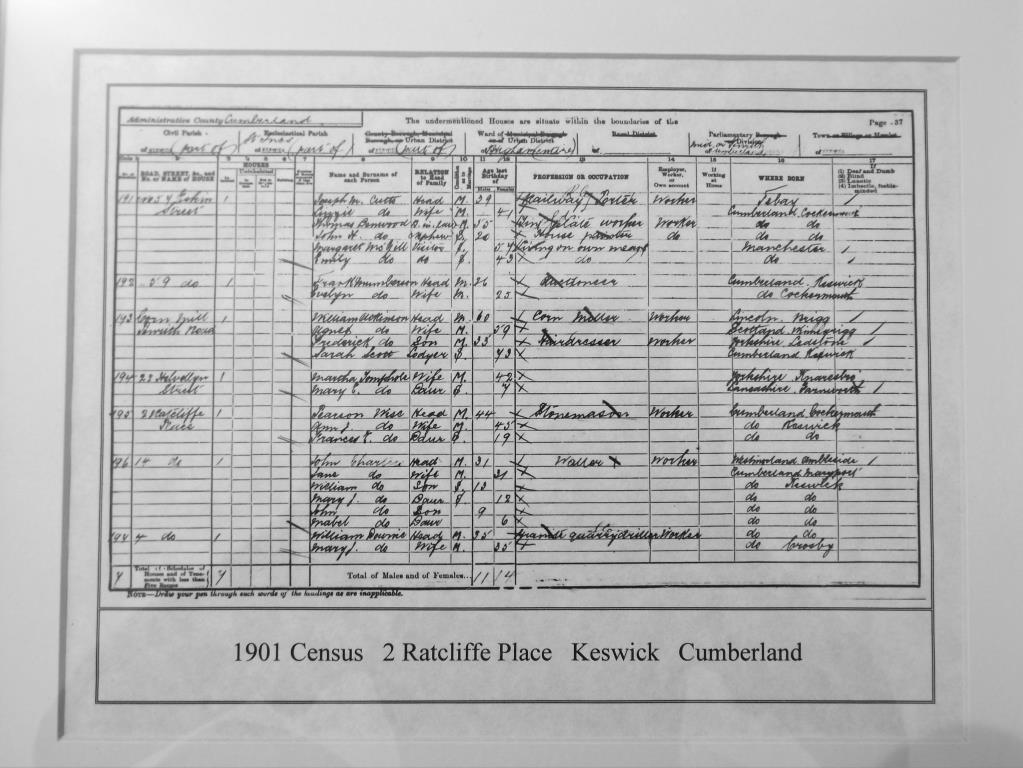 Administrative County Cumberland The undermentioned Houses are situate within the boundaries of the Page 37
Civil Parish Ecclesiastical Parish County Borough, Municipal Borough, or Urban District Ward of Municipal Borough or of Urban District Rural District Parliamentary Borough or Division Town or Village or Hamlet
(part of) St Johns (part of) (part of) of
ROAD, STREET, &c., and No. or NAME of HOUSE HOUSES Name and Surname of each Person RELATION to Head of Family Condition as to Marriage Age last Birthday of PROFESSION OR OCCUPATION Employer, Worker, or Own account If Working at Home WHERE BORN If (1) Deaf and Dumb (2) Blind (3) Lunatic (4) Imbecile, feeble-minded
Males Females
191 Street 1 Joseph M. Cutts Head M. 39 Railway Porter Worker Tebay
Lizzie do Wife M. 41 Cumberland Cockermouth
Thomas B. in law M. 55 worker Worker do do
John H. do Nephew S. 20 House painter do do do
Margaret McGill Visitor S. 54 Living on own means Manchester
Emily do do S. 43 do do
192 59 do 1 Frank Head M. 26 Auctioneer Cumberland Keswick
Evelyn do Wife M. 25 do Cockermouth
193 Mill Road 1 William Atkinson Head M. 60 Corn Miller Worker Lincoln Brigg
Agnes do Wife M. 59 Scotland
Frederick do Son M. 33 Hairdresser Worker Yorkshire
Sarah Scott Lodger S. 73 Cumberland Keswick
194 22 Helvellyn Street 1 Martha Wife M. 42 Yorkshire Knaresbro
Mary E. do Daur S. 7 Lancashire Farnworth
195 2 Ratcliffe Place 1 Pearson Wise Head M. 44 Stonemason Worker Cumberland Cockermouth
Ann J. do Wife M. 45 do Keswick
Frances E. do Daur S. 19 do do
196 14 do 1 John Charles Head M. 31 Waller Worker Westmorland Ambleside
Jane do Wife M. 31 Cumberland Maryport
William do Son S. 13 do Keswick
Mary J. do Daur S. 12 do do
John do Son 9 do do
Mabel do Daur 6 do do
4 do 1 William Head M. 35 quarry driller Worker do do
Mary J. do Wife M. 35 do Crosby
7 Total of Schedules of Houses and of Tenements with less than Five Rooms 7 Total of Males and of Females... 11 14
NOTE—Draw your pen through such words of the headings as are inapplicable.
1901 Census 2 Ratcliffe Place Keswick Cumberland